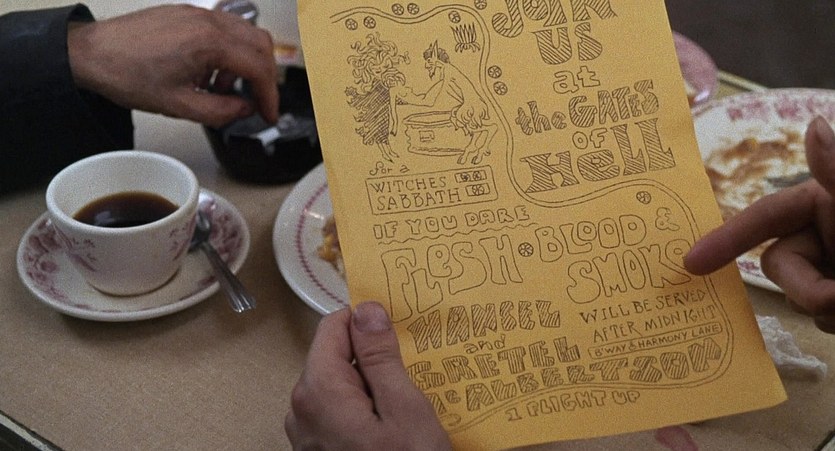 JOIN
US
at
the GATES
OF
HELL
for a
WITCHES
SABBATH
IF YOU DARE
FLESH BLOOD &
SMOKE
WILL BE SERVED
AFTER MIDNIGHT
B'WAY & HARMONY LANE
HANSEL
and
GRETEL
McALBERTSON
1 FLIGHT UP